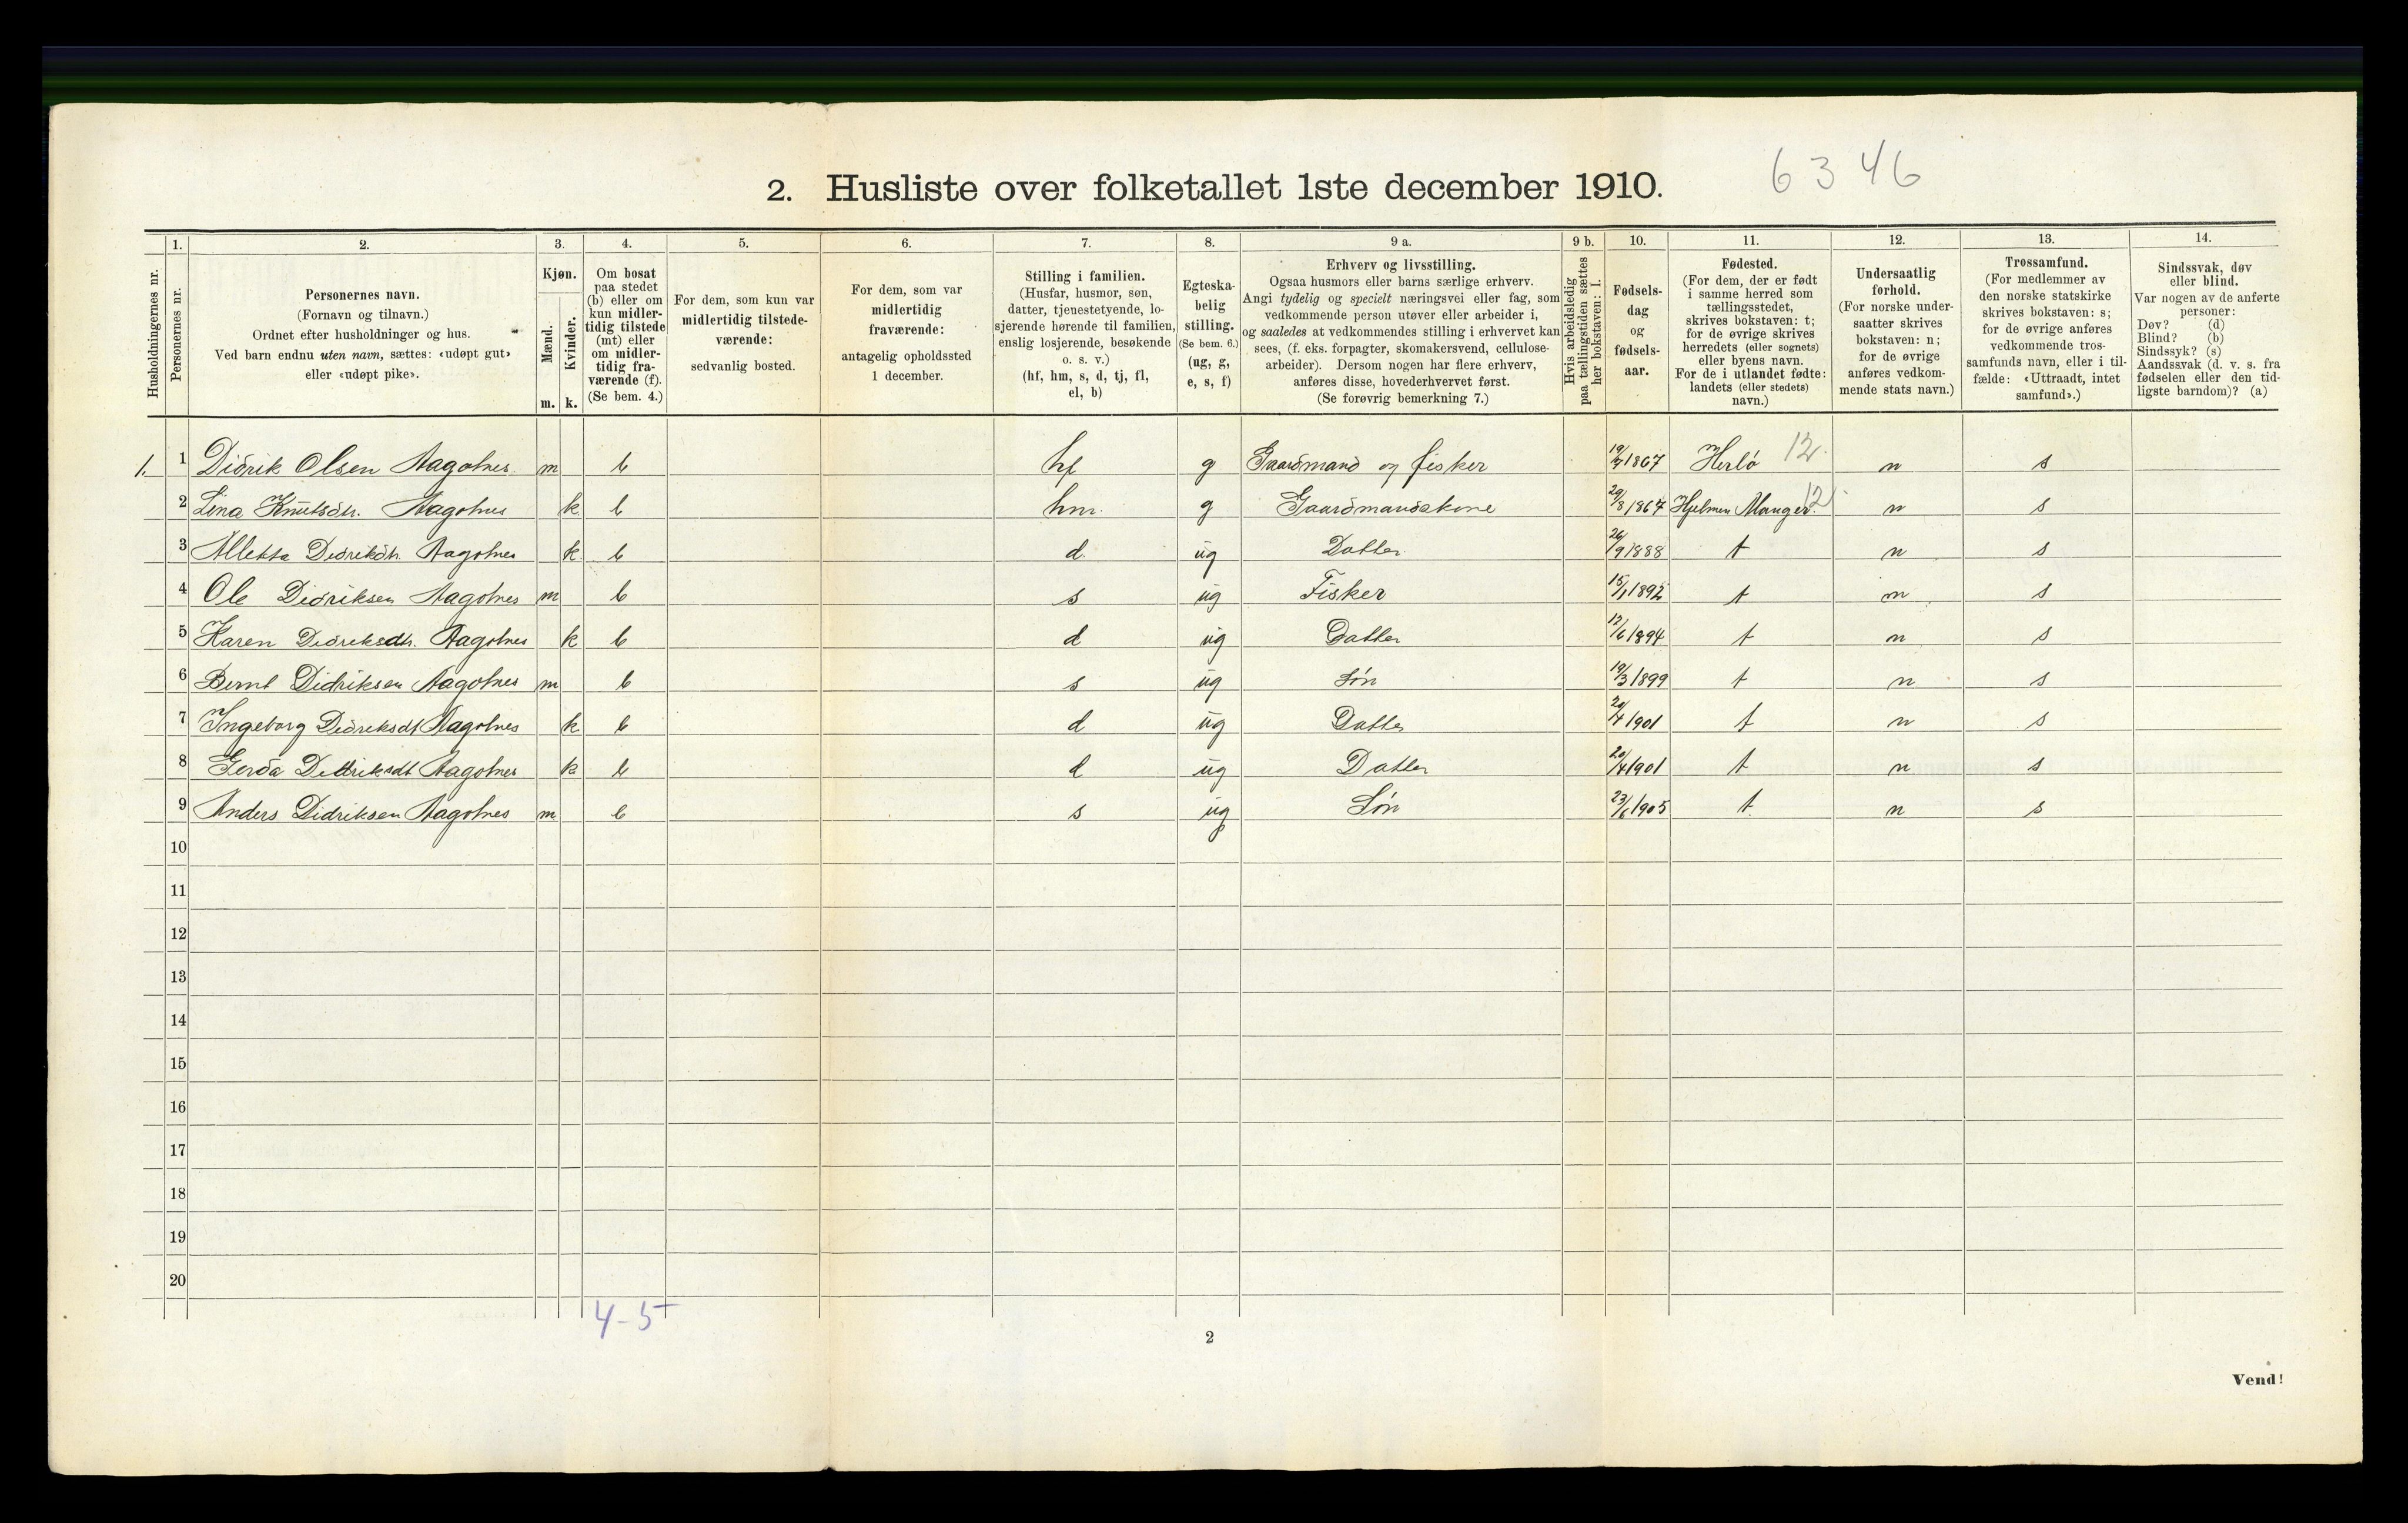 6346
2. Husliste over folketallet 1ste december 1910.
Husholdningernes nr.
1.
Personernes nr.
2.
Personernes navn.
(Fornavn og tilnavn.)
Ordnet efter husholdninger og hus.
Ved barn endnu uten navn, sættes: «udøpt gut»
eller «udøpt pike».
3.
Kjøn.
Mænd.
Kvinder.
m. k.
4.
Om bosat
paa stedet
(b) eller om
kun midler-
tidig tilstede
(mt) eller
om midler-
tidig fra-
værende (f).
(Se bem. 4.)
5.
For dem, som kun var
midlertidig tilstede-
værende:
sedvanlig bosted.
6.
For dem, som var
midlertidig
fraværende:
antagelig opholdssted
1 december.
7.
Stilling i familien.
(Husfar, husmor, søn,
datter, tjenestetyende, lo-
sjerende hørende til familien,
enslig losjerende, besøkende
o. s. v.)
(hf, hm, s, d, tj, fl,
el, b)
8.
Egteska-
belig
stilling.
(Se bem. 6.)
(ug, g,
e, s, f)
9 a.
Erhverv og livsstilling.
Ogsaa husmors eller barns særlige erhverv.
Angi tydelig og specielt næringsvei eller fag, som
vedkommende person utøver eller arbeider i,
og saaledes at vedkommendes stilling i erhvervet kan
sees, (f. eks. forpagter, skomakersvend, cellulose-
arbeider). Dersom nogen har flere erhverv,
anføres disse, hovederhvervet først.
(Se forøvrig bemerkning 7.)
9 b.
Hvis arbeidsledig
paa tællingstiden sættes
her bokstaven: l.
10.
Fødsels-
dag
og
fødsels-
aar.
11.
Fødested.
(For dem, der er født
i samme herred som
tællingsstedet,
skrives bokstaven: t;
for de øvrige skrives
herredets (eller sognets)
eller byens navn.
For de i utlandet fødte:
landets (eller stedets)
navn.)
12.
Undersaatlig
forhold.
(For norske under-
saatter skrives
bokstaven: n;
for de øvrige
anføres vedkom-
mende stats navn.)
13.
Trossamfund.
(For medlemmer av
den norske statskirke
skrives bokstaven: s;
for de øvrige anføres
vedkommende tros-
samfunds navn, eller i til-
fælde: «Uttraadt, intet
samfund».)
14.
Sindssvak, døv
eller blind.
Var nogen av de anførte
personer:
Døv? (d)
Blind? (b)
Sindssyk? (s)
Aandssvak (d. v. s. fra
fødselen eller den tid-
ligste barndom)? (a)
1. 1 Didrik Olsen Aagotnes m b hf g Gaardmand og fisker 1867 Herlø 12 n s
2 Lina Knutsdtr. Aagotnes k b hm g Gaardmandskone 29/8 1867 Hjelmen Manger 12 n s
3 Alletta Didrikdtr. Aagotnes k b d ug Datter 26/9 1888 t n s
4 Ole Didriksen Aagotnes m b s ug Fisker 15/1 1892 t n s
5 Karen Didriksdtr. Aagotnes k b d ug Datter 12/6 1894 t n s
6 Bernt Didriksen Aagotnes m b s ug Søn 19/3 1899 t n s
7 Ingeborg Didriksdt Aagotnes k b d ug Datter 20/4 1901 t n s
8 Gerda Didriksdt Aagotnes k b d ug Datter 20/4 1901 t n s
9 Anders Didriksen Aagotnes m b s ug Søn 23/6 1905 t n s
10
11
12
13
14
15
16
17
18
19
20
4-5
2
Vend!